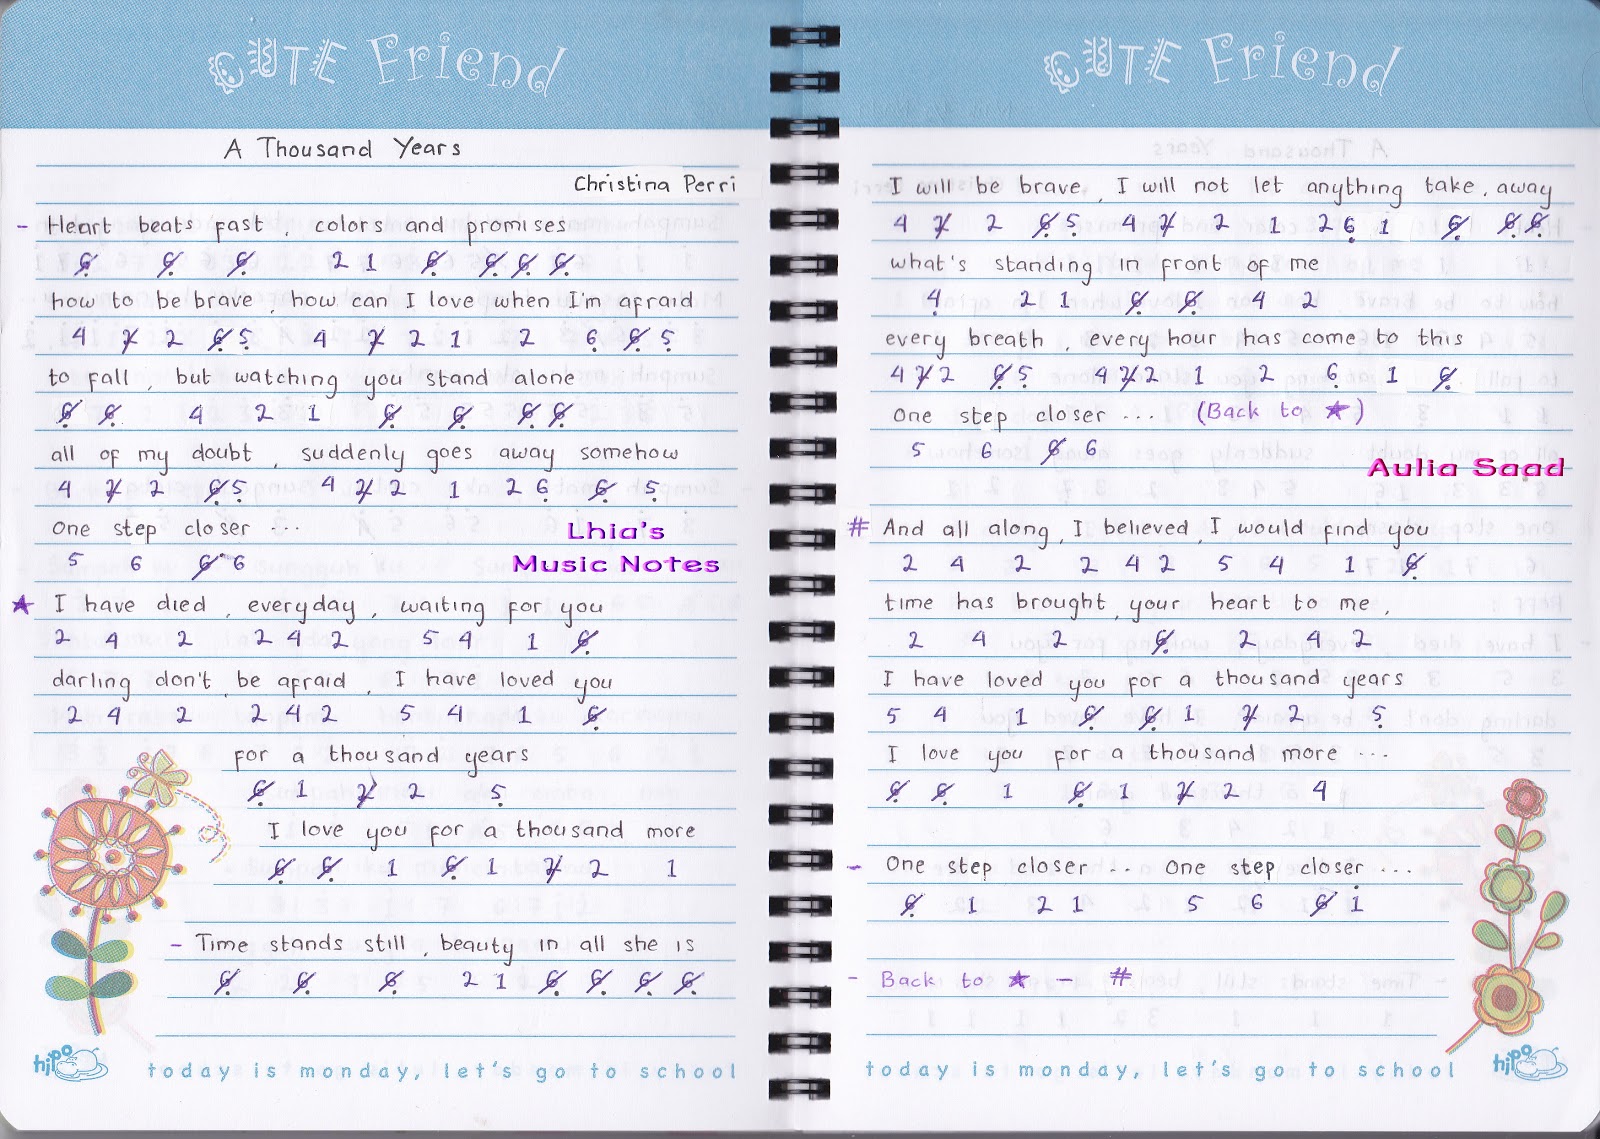 CUTE Friend
A Thousand Years
Christina Perri
- Heart beats fast, colors and promises
6 6 6 2 1 6 6 6 6
how to be brave, how can I love when I'm afraid
4 2 2 6 5 4 2 2 1 2 6 6 5
to fall, but watching you stand alone
6 6 4 2 1 6 6 6 6
all of my doubt, suddenly goes away somehow
4 2 2 6 5 4 2 2 1 2 6 6 5
one step closer ...
5 6 6 6
Lhia's
Music Notes
★ I have died, everyday, waiting for you
2 4 2 2 4 2 5 4 1 6
darling don't, be afraid, I have loved you
2 4 2 2 4 2 5 4 1 6
for a thousand years
6 1 2 2 5
I love you for a thousand more
6 6 1 6 1 2 2 1
- Time stands still, beauty in all she is
6 6 6 2 1 6 6 6 6
hipo
today is monday, let's go to school
CUTE Friend
I will be brave, I will not let anything take, away
4 2 2 6 5 4 2 2 1 2 6 1 6 6 6
what's standing in front of me
4 2 1 6 6 4 2
every breath, every hour has come to this
4 2 2 6 5 4 2 2 1 2 6 1 6
one step closer ... (Back to ★)
5 6 6 6
Aulia Saad
# And all along, I believed, I would find you
2 4 2 2 4 2 5 4 1 6
time has brought, your heart to me,
2 4 2 6 2 4 2
I have loved you for a thousand years
5 4 1 6 6 1 2 2 5
I love you for a thousand more ...
6 6 1 6 1 2 2 4
- One step closer ... One step closer ...
6 1 2 1 5 6 6 1
- Back to ★ - #
hipo
today is monday, let's go to school